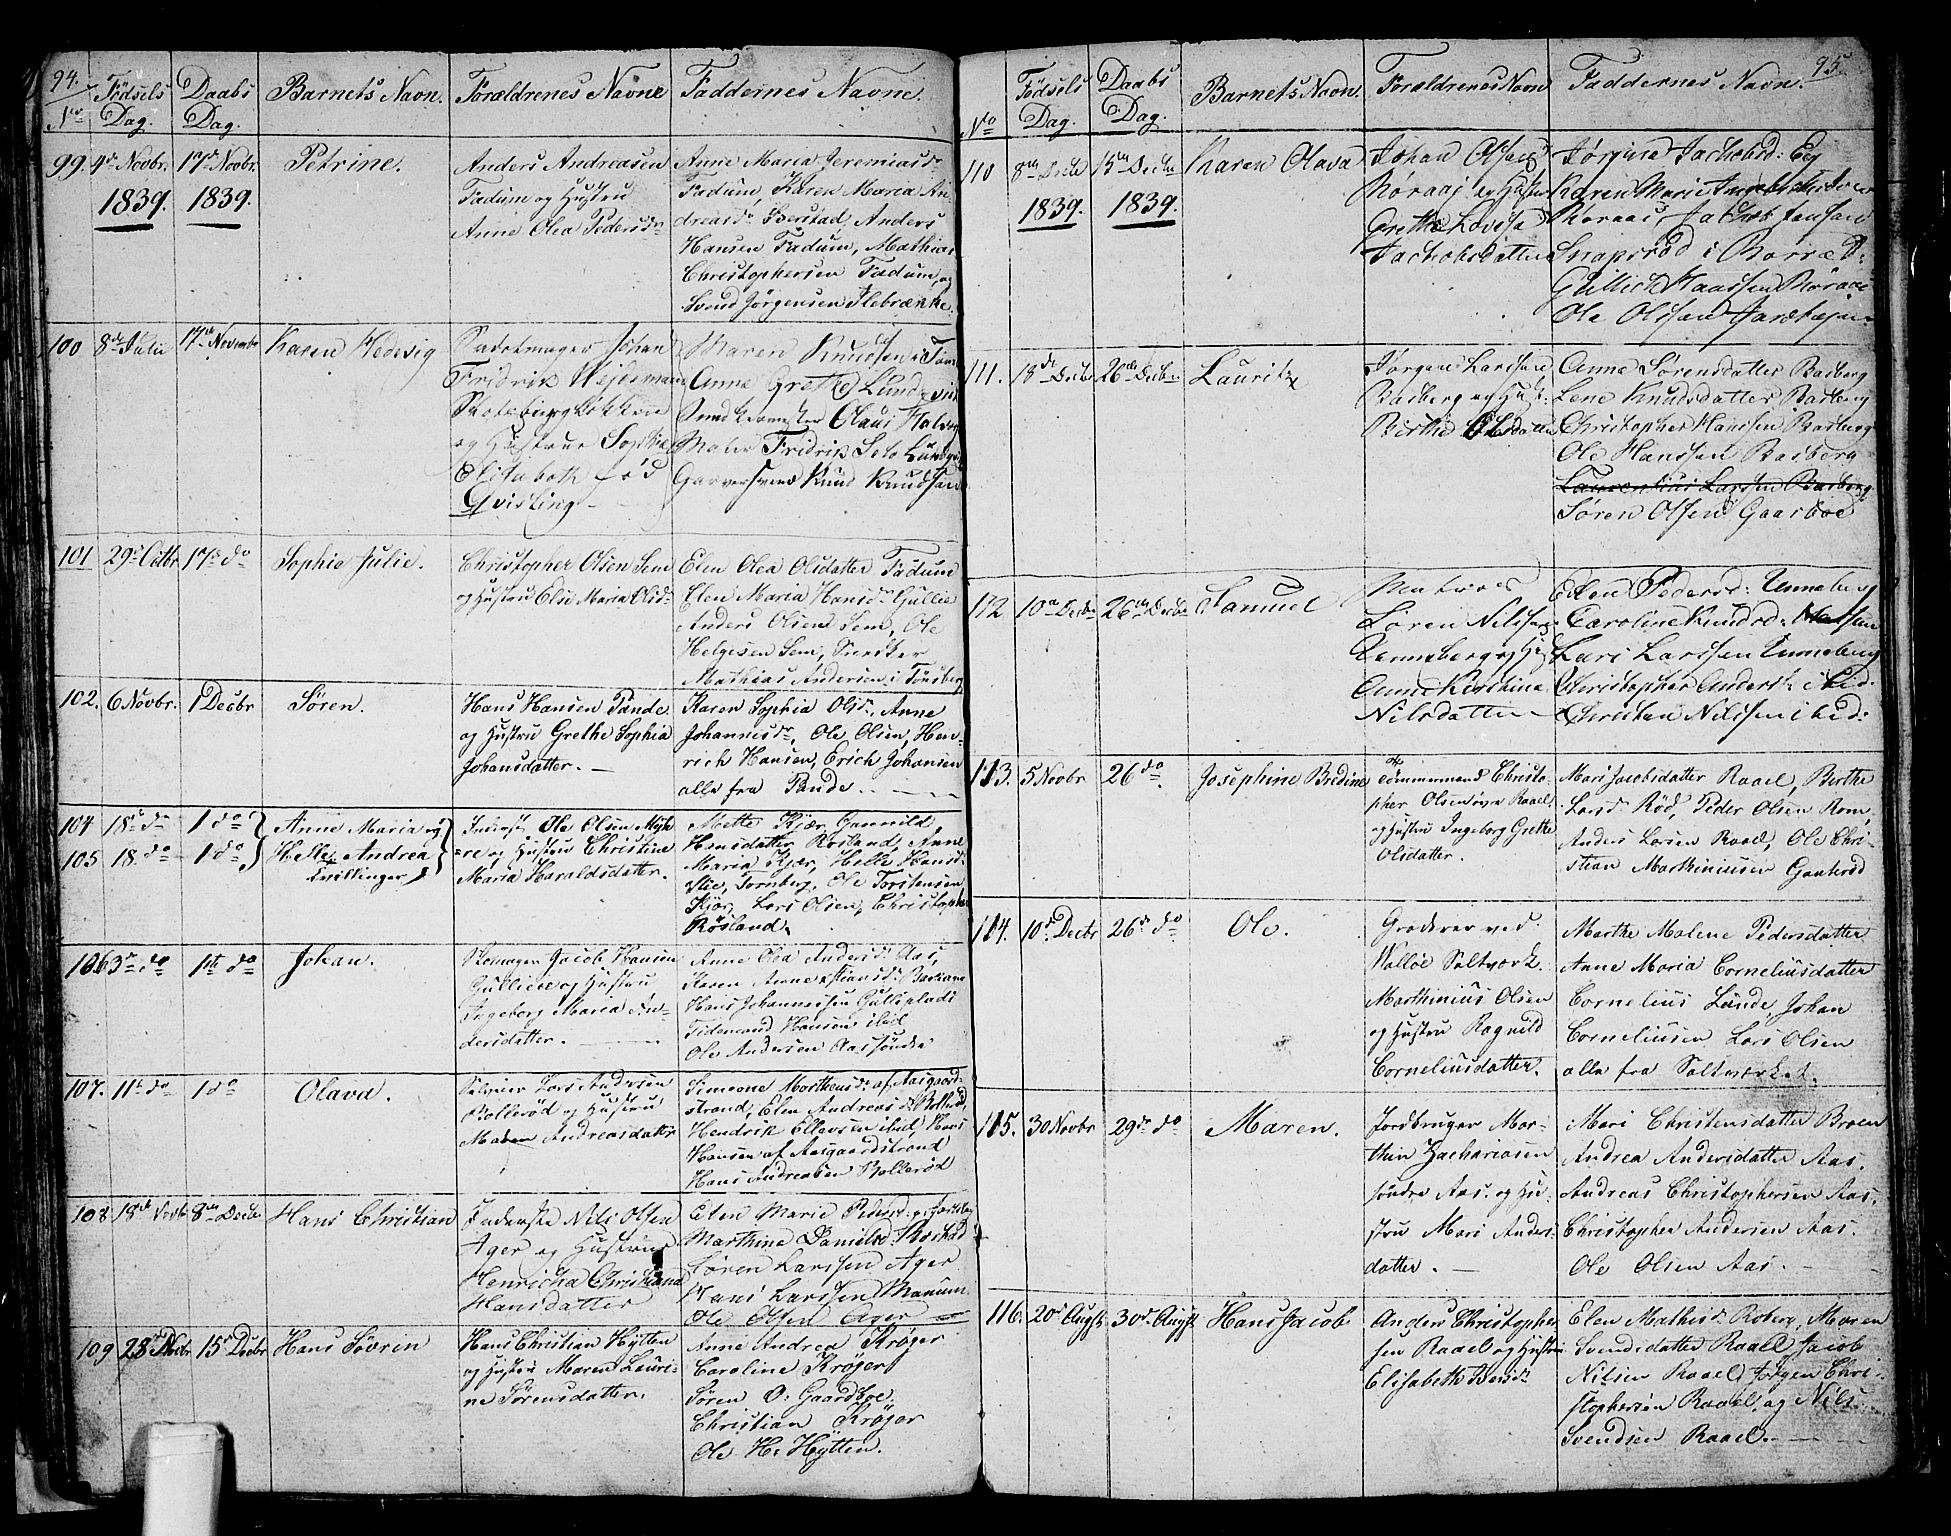 94.
No
Fødsels
Dag.
Daabs
Dag.
Barnets Navn.
Forældrenes Navne
Faddernes Navne.
99. 4d Novbr. 17d Novbr.
1839. 1839.
Petrine.
Anders Andreasen
Fadum og Hustru
Anne Olea Pedersdr
Anne Maria Jeremiasdr
Fadum, Karen Maria An-
dreasdr Berstad, Anders
Hansen Fadum, Mathias
Christophersen Fadum, og
Svend Jørgensen Ilebrænke.
100 8de Julii 17de Novembr
Karen Hedevig
Johan
Fridrik
og Hustrue Sophie
Elisabeth fød
Qvisling
Maren Knudsen
Anna Grethe Lund
Claus
Maler Fridrik
Garversvend Knud Knudsen
101 29d Octbr 17d do
Sophie Julie.
Christopher Olsen Sem
og Hustru Else Maria Olsdr
Elen Olea Olsdatter Fadum
Elen Maria Hansdr Gullie
Anders Olsen Sem, Ole
Helgesen Sem, Snedker
Mathias Andersen i Tønsberg
102. 6 Novbr. 1 Decbr
Søren.
Hans Hansen Pande
og Hustru Grethe Sophia
Johansdatter. —
Karen Sophia Olsdr, Anne
Johannesdr, Ole Olsen, Hen-
rich Hansen, Erich Johansen
alle fra Pande. —
104 18d do 1 do
105 18. do 1 do
Anne Maria og
Helle Andrea
Tvillinger
Inderst Ole Olsen Myh-
re og Hustru Christine
Maria Haraldsdatter.
Mette Kjær, Gunnild
Hansdatter Rosland, Anne
Maria Kjær, Helle Hansdr
Slie, Tornberg, Ole Torstensen
Kjær, Lars Olsen, Christopher
Røsland.
106 3d do 1st do
Johan.
Skomager Jacob Hansen
Gulliere og Hustru
Ingeborg Maria An-
dersdatter. —
Anne Olea Andersdr Aas,
Karen Anne
Hans Johannessen
Tidemand Hansen ibid
Ole Andersen Aas søndre
107. 11t do 1 do
Olava.
Lars Andersen
Rollerød og Hustru
Maren Andreasdatter
Simeone Morthensdr af Aasgaard-
strand, Elen Andreasdr Rollerød
Hendrik Ellevsen ibid, Hans
Hansen af Aasgaardstrand
Hans Andreasen Rollerød
108 18de Novbr 8de Decbr
Hans Christian
Nils Olsen
Ager og Hustrue
Henricha Christiana
Hansdatter
Elen Marie Pedersd:
Marthine Danielsd: Rostad
Søren Larssen Ager
Hans Larssen
Ole Olsen Ager
109 28 Novbr 15 Decbr
Hans Søvrin
Hans Christian Hytten
og Hustru Maren Lauri-
ne Sørensdatter.
Anne Andrea Krøger
Caroline Krøger
Søren O. Gaardboe
Christian Krøger
Ole H. Hytten.
95
No
Fødsels
Dag.
Daabs
Dag.
Barnets Navn.
Forældrenes Navn
Faddernes Navn.
110 8de Decbr 15de Decbr
1839. 1839.
Karen Olava
Johan Olssen
Røraas og Hustru
Grethe Lovise
Jachobsdatter
Jørgine Jachobsd: Ey
Karen Marie
Røraas, Jachob Jansen
Snaprød i Borre
Gullich Klaassen Røraas
Ole Olssen
111. 18de Decbr 26de Decbr
Lauritz
Jørgen Larssen
Basberg og Hust:
Birthe Olsdatter
Anne Sørensdatter Basberg
Lene Knudsdatter Basberg
Christopher Hanssen Basberg
Ole Hanssen Basberg
Laurentius Larssen Basberg
Søren Olssen Gaarboe
112 10de Decbr 26de Decbr
Samuel
Matros
Søren Nilssen
Unneberg og H:
Anne Kirstine
Nilsdatter
Ellen Pedersd: Unneberg
Caroline Knudsd:
Lars Larssen Unneberg
Christopher Anders: ibid.
Christen Nilssen ibid:
113. 5 Novbr 26 do
Josephine Bredine
Tømmermand Christo-
pher Olsen øvre Raael
og Hustru Ingeborg Grethe
Olsdatter.
Mari Jacobsdatter Raael, Berthe
Larsd Rød, Peder Olsen Rom,
Anders Larsen Raael, Ole Chri-
stian Marthiniusen Gontersd
114. 10d. Decbr 26d do
Ole.
Graderer ved
Walløe Saltværk.
Marthinius Olsen
og Hustru Ragnild
Corneliusdatter.
Marthe Malene Pedersdatter
Anne Maria Corneliusdatter
Cornelius Lunde, Johan
Corneliusen Lars Olsen
alle fra Saltværket.
115. 30 Novbr 29d do
Maren.
Jordbruger Mar-
thin Zachariasen
søndre Aas. og Hu-
stru Mari Anders-
datter. —
Mari Christensdatter Broen
Andrea Andersdatter Aas.
Andreas Christophersen Aas.
Christopher Andersen Aas.
Ole Olsen Aas. —
116. 20d Augst 30d. Augst
Hans Jacob
Anders Christopher-
sen Raael og Hustru
Elisabeth Iversdr
Elen Mathisdr Roberg, Maren
Svendsdatter Raael Jacob
Nilsen Raael, Jørgen Chri-
stophersen Raael, og Nils
Svendsen Raael. —